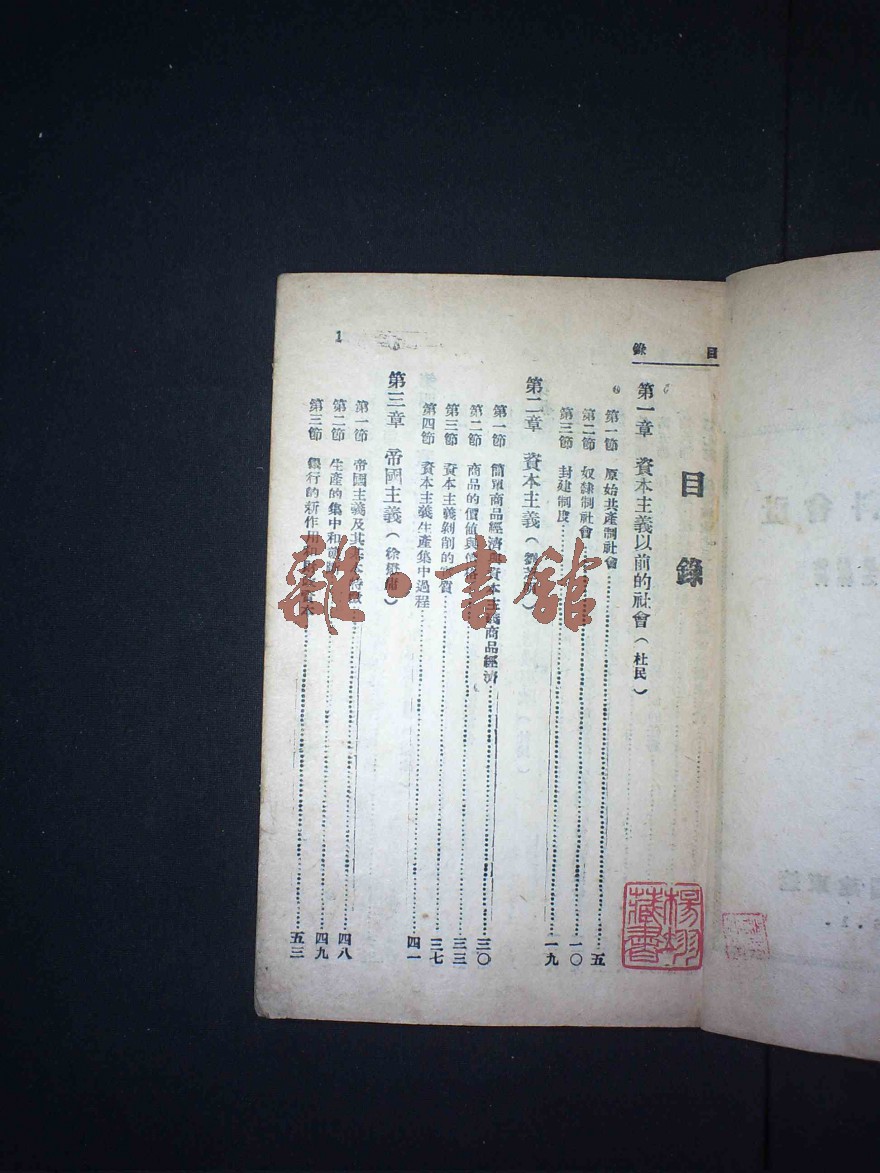 目錄
目錄
第一章 資本主義以前的社會(杜民)
第一節 原始共產制社會 五
第二節 奴隸制社會 一〇
第三節 封建制度 一九
第二章 資本主義
第一節 簡單商品經濟與資本主義商品經濟 三〇
第二節 商品的價值與價格 三三
第三節 資本主義剝削的實質 三七
第四節 資本主義生產集中過程 四一
第三章 帝國主義(徐懋庸)
第一節 帝國主義及其基本特徵 四八
第二節 生產的集中和 四九
第三節 銀行的新作用和 五三
1
雜·書館
楊翊藏書